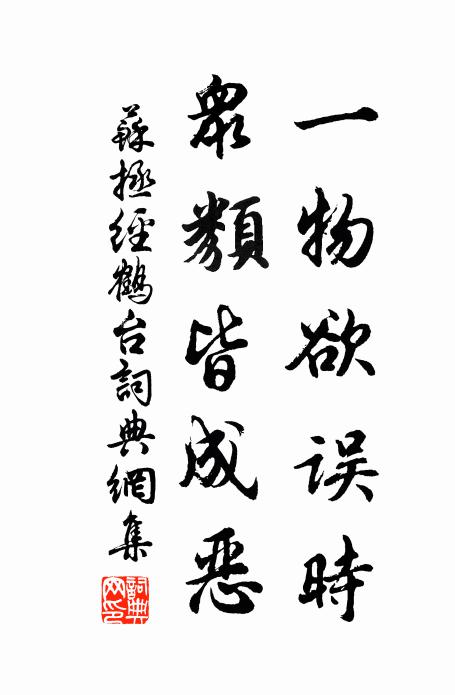 一物欲误時
衆類皆成恶
蘇拯經鶴台詞典網集
詞典网印